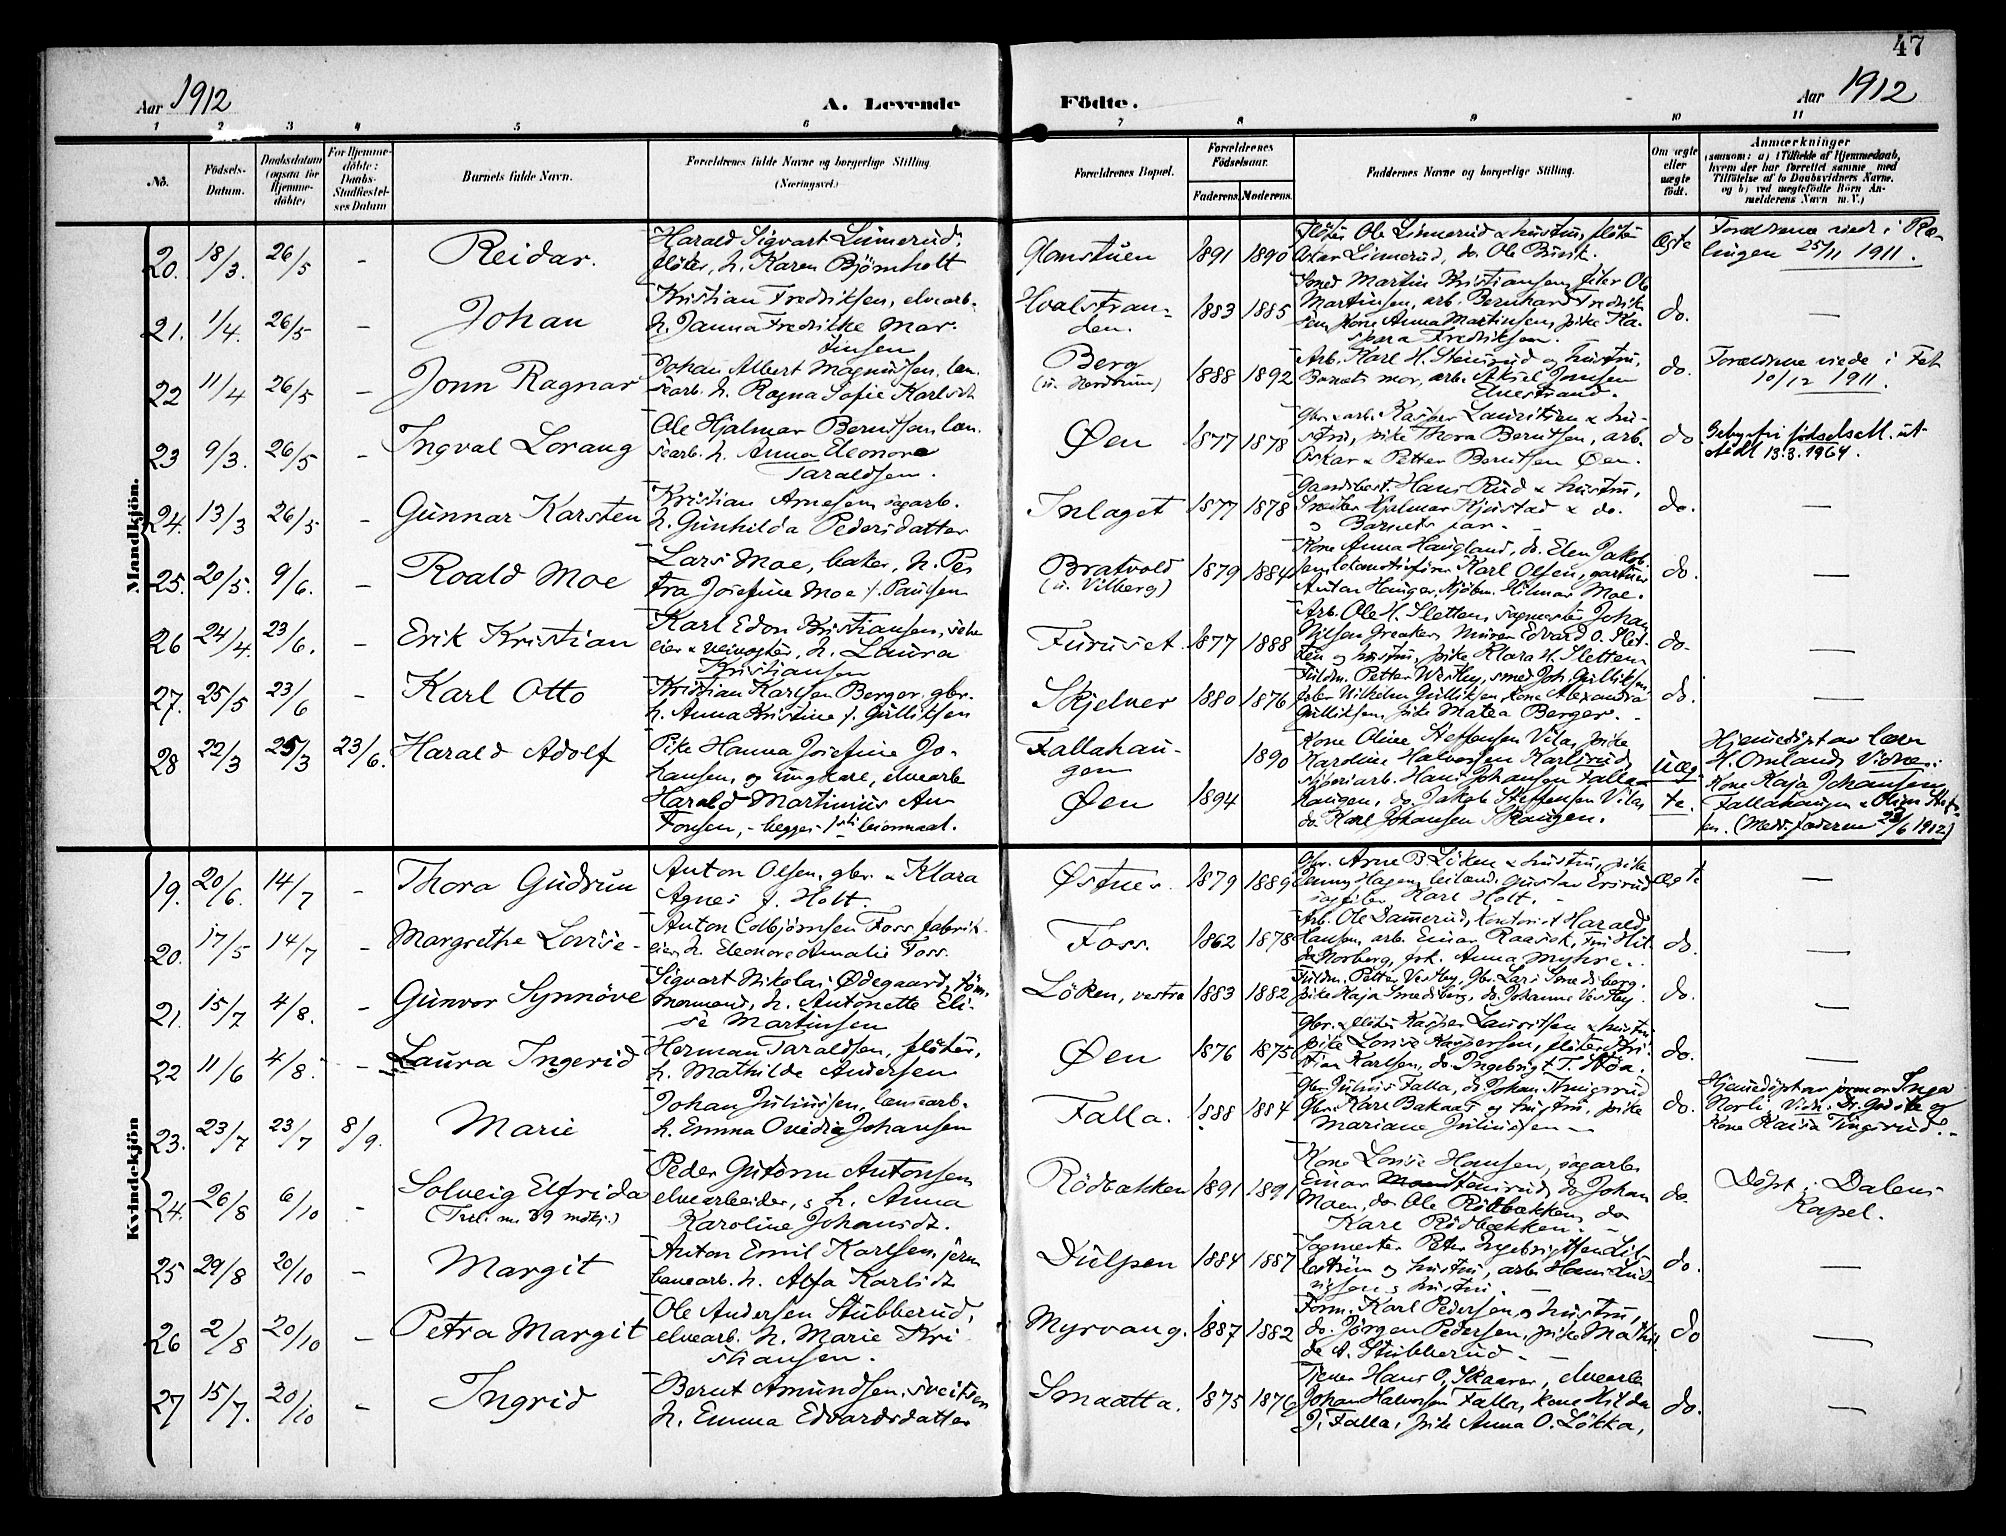 47
Aar 1912
A. Levende
Födte.
Aar 1912
1 2 3 4 5 6 7 8 9 10 11
No.
Födsels-
Datum.
Daabsdatum
(ogsaa for
Hjemme-
döbte)
For Hjemme-
döbte:
Daabs-
Stadfæstel-
ses Datum
Barnets fulde Navn.
Forældrenes fulde Navne og borgerlige Stilling.
(Næringsvei.)
Forældrenes Bopæl.
Forældrenes
Födselsaar.
Faderens Moderens
Faddernes Navne og borgerlige Stilling.
Om ægte
eller
uægte
födt.
Anmærkninger
(saasom: a) i Tilfælde af Hjemmedaab,
hvem der har forrettet samme, med
Tilföielse af to Daabsvidners Navne,
og b) ved uægtefödte Börn An-
melderens Navn m. V.)
Mandkjön.
20. 18/3. 26/5 - Reidar.
Harald Sigvart Linnerud,
flöter, h. Karen Björnholt
Glomstuen 1891 1890
Flöter Ole Linnerud & hustru, flöter
Oskar Linnerud, do. Ole
Ægte
Forældrene viet i Ræ-
lingen 25/11 1911.
21. 1/4. 26/5 - Johan
Kristian Fredriksen, elvearb.
h. Janna Fredrikke Mar-
tinsen
Hvalstran-
den. 1883 1885
Smed Martin Kristiansen, filer Ole
Martinsen, arb. Bernhard Fredrik-
sen, kone Anna Martinsen, pike Ka-
spara Fredriksen.
do. -
22 11/4 26/5 - Jonn Ragnar
Johan Albert Magnussen, læn-
searb. h. Ragna Sofie Karlsdt.
Berg
(u. Nordrum) 1888 1892
Arb. Karl H. Stensrud og hustru,
Barnets mor, arb. Aksel Jensen
Elvestrand.
do.
Forældrene viede i Fet
10/12 1911.
23 9/3. 26/5 - Ingval Lorang
Ole Hjalmar Berntsen, læn-
searb. h. Anna Eleonore
Taraldsen.
Øen 1877 1878
Gbr. & arb. Kasper Lauritsen & hu-
stru, pike Thora Berntsen, arb.
Oskar & Petter Berntsen Øen.
do
Gebyrfri födselsatt. ut-
stedt 13.3.1964.
24. 13/3 26/5 - Gunnar Karsten
Kristian Arnesen, sagarb.
h. Gunhilda Pedersdatter
Inlaget 1877 1878
Gaardsbest. Hans Rud & hustru,
Snekker Hjalmar Kjustad & do.
og Barnets far. -
do. -
25. 20/5. 9/6. - Roald Moe
Lars Moe, baker, h. Pe-
tra Josefine Moe f. Paulsen
Bratvold
(u. Vilberg) 1879 1884
Kone Anna Haugland, do. Elen Jakob-
sen, lokomotivförer Karl Olsen, gartner
Anton Hauger, Kjöbm. Hilmar Moe.
do. -
26 24/4. 23/6. - Erik Kristian
Karl Edon Kristiansen, selv-
eier & veivogter, h. Laura
Kristiansen
Furuset. 1877 1888
Arb. Ole H. Sletten, sagmester Johan
Nilsen Greaker, Murer Edvard O. Slet-
ten og hustru, pike Klara H. Sletten
do. -
27. 25/5 23/6 - Karl Otto
Kristian Karlsen Berger, gbr.
h. Anna Kristine f. Gulliksen
Skjelver 1880 1876
Fuldm. Petter Westby, smed Joh. Gulliksen,
filer Vilhelm Gulliksen, kone Alexandra
Gulliksen, pike Matea Berger. -
do. -
28 22/3 25/3 23/6. Harald Adolf
Pike Hanna Josefine Jo-
hansen, og ungkarl, elvearb.
Harald Martinius An-
tonsen, - begges 1ste leiermaal.
Fallahau-
gen 1890
Øen 1894
Kone Oline Steffensen Vila, pike
Karoline Halvorsen Karlsrud,
arb. Hans Johansen Falla-
haugen, do. Jakob Steffensen Vila,
do. Karl Johansen Skaugen.
uæg-
te.
Hjemmedöpt av læge
H. Omland. Vidne:
Kone Kaja Johansen
Fallahaugen & Oline Stef-
sen. (Meds. faderen 22/6 1912)
Kvindekjön
19. 20/6. 14/7 - Thora Gudrun
Anton Olsen, gbr. & Klara
Agnes f. Holt.
Østnes. 1879 1889
Gbr. Arne B. Löken & hustru, pike
Jenny Hagen, Gustav Ersrud
Karl Holt. -
ægte -
20. 17/5 14/7 - Margrethe Lovise -
Anton Colbjörnsen Foss, fabrik-
eier, h. Eleonore Amalie Foss.
Foss. 1862 1878
Arb. Ole Dammerud, kontorist Harald
Hansen, arb. Einar Raasok, Fru Hil-
da Norberg, frk. Anna Myhre.
do. -
21. 15/7 4/8. - Gunvor Synnöve
Sigvart Nikolai Ødegaard, töm-
mermand, h. Antonette Eli-
se Martinsen
Löken, vestre 1883 1882
Fuldm. Petter Vestby, Gbr. Lars Smedsberg,
pike Kaja Smedsberg, do. Johanne Vestby.
do. -
22 11/6 4/8. - Laura Ingerid
Herman Taraldsen, flöter,
h. Mathilde Andersen
Øen 1876 1875
Gbr. & flöter Kasper Lauritsen & hustru
pike Lovise Kaspersen, flöter Kri-
stian Karlsen, do. Ingebrigt T. Støa.
do. -
23. 23/7 23/7 8/9. Marie
Johan Juliussen, lensearb.
h. Emma Ovidia Johansen
Falla. 1888 1884
Gbr. Julius Falla, do. Johan Tingsrud
Gbr. Karl Baknes og hustru, pike
Mariane Juliussen -
do.
Hjemmedöpt av jormor Inga
Norli. Vidn: Dr. Godske og
Kone Kaisa Tingsrud. -
24. 26/8 6/10 - Solveig Elfrida
Peder Gutorm Antonsen
elvearbeider, & h. Anna
Karoline Johansdt.
Rödbakken 1891 1891
Kone Lovise Hansen, sagarbr.
Einar Stensrud, do. Johan
Moen, do. Ole Rödbækken, do
Karl Rödbækken. -
do.
Döpt i Dalens
Kapel.
25 29/8 20/10 - Margit
Anton Emil Karlsen, jern-
banearb. h. Alfa Karlsdt.
Dulpen 1884 1887
Sagmester Peter Ingebrigtsen Lil-
leström og hustru, arb. Hans Lud-
vigsen & hustru. -
do. -
26 2/8 20/10 - Petra Margit
Ole Andersen Stubberud,
elvearb. h. Marie Kri-
stiansen.
Myrvang. 1887 1882
Form. Karl Pedersen, og hustru,
do. Jörgen Pedersen, pike Mathil-
de A. Stubberud -
do -
27 15/7. 20/10 - Ingrid
Bernt Amundsen, sveitser
h. Emma Edvardsdatter
Smaatta. 1875 1876
Tjener Hans O. Skaarer, elvearb.
Johan Halvorsen Falla, kone Hilda
J. Falla, pike Anna O. Lökka,
do. -